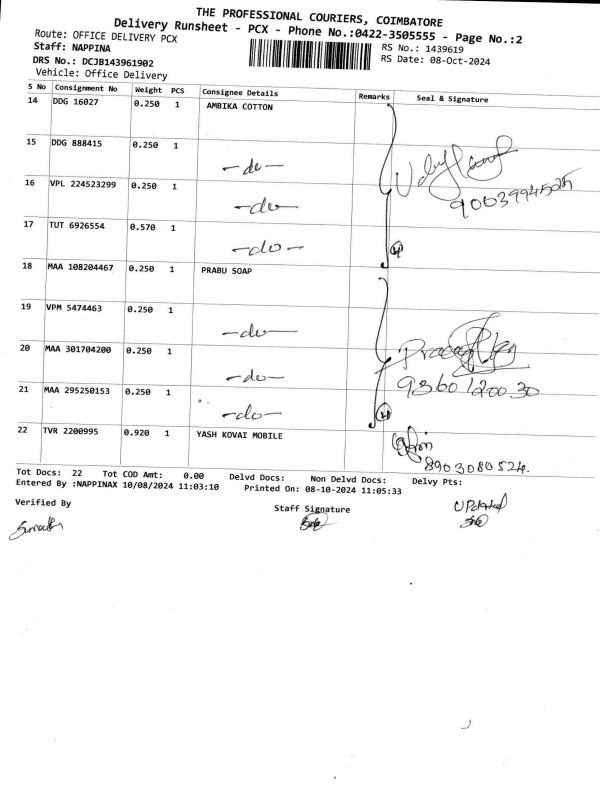 THE PROFESSIONAL COURIERS, COIMBATORE
Delivery Runsheet - PCX - Phone No.:0422-3505555 - Page No.:2
Route: OFFICE DELIVERY PCX
RS No.: 1439619
Staff: NAPPINA
RS Date: 08-Oct-2024
DRS No.: DCJB143961902
Vehicle: Office Delivery
S No Consignment No Weight PCS Consignee Details Remarks Seal & Signature
14 DDG 16027 0.250 1 AMBIKA COTTON
15 DDG 888415 0.250 1
-do-
16 VPL 224523299 0.250 1
-do-
17 TUT 6926554 0.570 1
-do-
4
18 MAA 108204467 0.250 1 PRABU SOAP
19 VPM 5474463 0.250 1
-do-
20 MAA 301704200 0.250 1
-do-
9360120030
21 MAA 295250153 0.250 1
-do-
4
22 TVR 2200995 0.920 1 YASH KOVAI MOBILE
8903080524.
Tot Docs: 22 Tot COD Amt: 0.00 Delvd Docs: Non Delvd Docs: Delvy Pts:
Entered By :NAPPINAX 10/08/2024 11:03:10 Printed On: 08-10-2024 11:05:33
Verified By
Staff Signature
UPdated